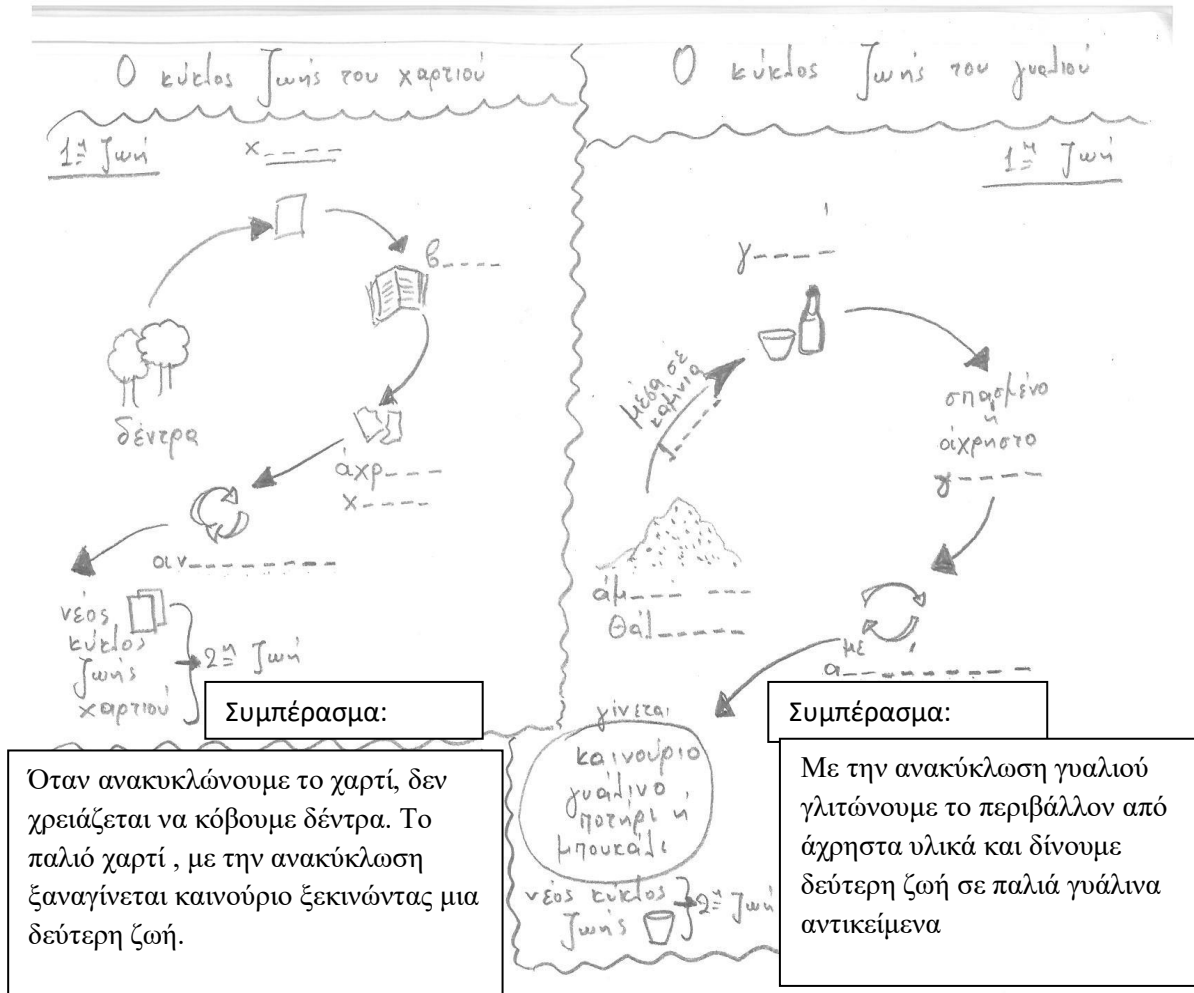 Ο κύκλος ζωής του χαρτιού
1η ζωή
χ_ _ _ _
β_ _ _ _
δέντρα
άχρ_ _ _
χ_ _ _ _
αν_ _ _ _ _ _ _ _
νέος
κύκλος
ζωής
χαρτιού
2η ζωή
Συμπέρασμα:
Όταν ανακυκλώνουμε το χαρτί, δεν
χρειάζεται να κόβουμε δέντρα. Το
παλιό χαρτί , με την ανακύκλωση
ξαναγίνεται καινούριο ξεκινώντας μια
δεύτερη ζωή.
Ο κύκλος ζωής του γυαλιού
1η ζωή
γ_ _ _ _
μέσα σε
καμίνια
σπασμένο
ή
άχρηστο
γ_ _ _ _
άμ_ _ _ _ _ _
θάλ_ _ _ _ _
με
α_ _ _ _ _ _ _ _ _
γίνεται
καινούριο
γυάλινο
ποτήρι ή
μπουκάλι
νέος κύκλος
ζωής
2η ζωή
Συμπέρασμα:
Με την ανακύκλωση γυαλιού
γλιτώνουμε το περιβάλλον από
άχρηστα υλικά και δίνουμε
δεύτερη ζωή σε παλιά γυάλινα
αντικείμενα